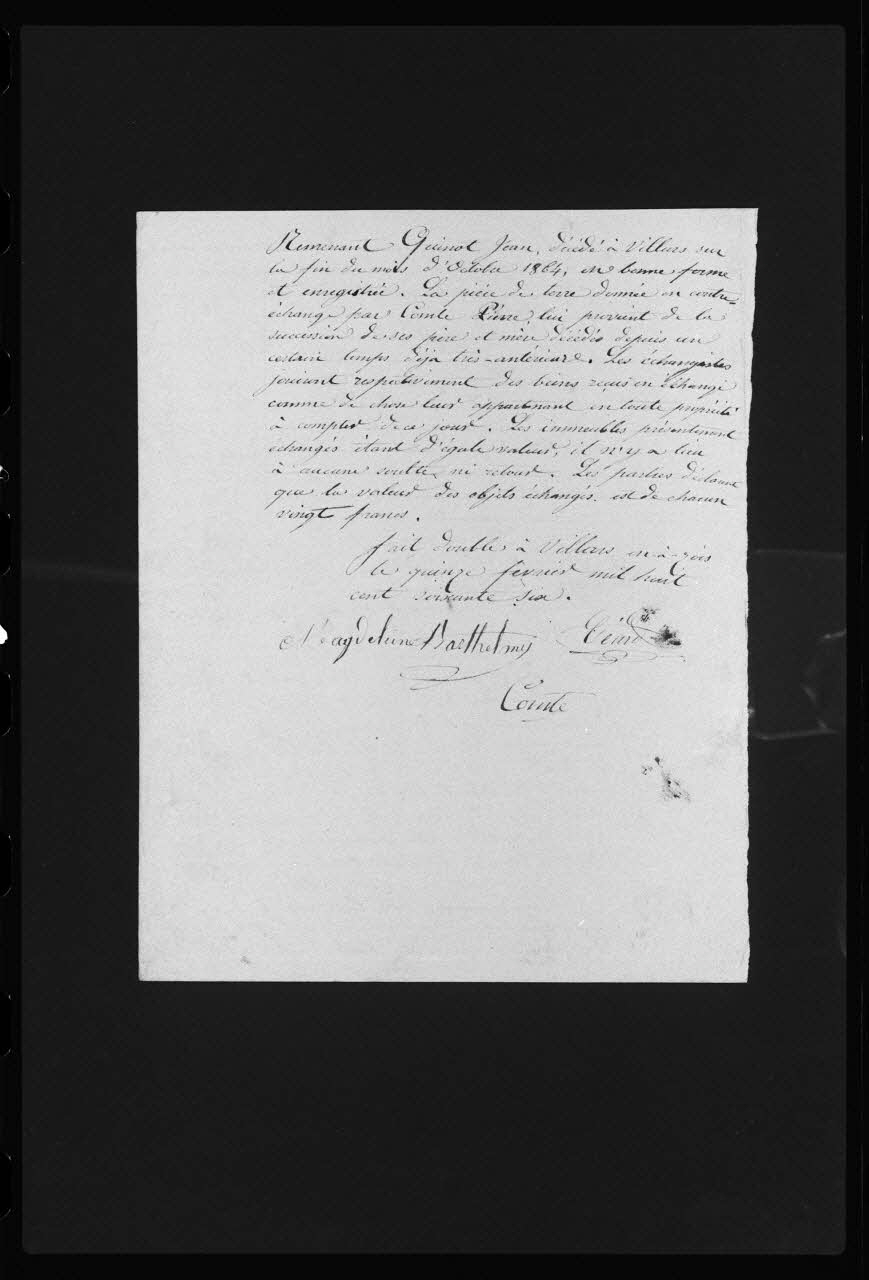 Quinot Jean, décédé à Villars sur
la fin du mois d'Octobre 1864, en bonne forme
et enregistrée. La pièce de terre donnée en contre-
échange par Comte Pierre lui provient de la
succession de ses père et mère décédés depuis un
certain temps déjà très-antérieure. Les échangistes
jouiront respectivement des biens reçus en échange
comme de chose leur appartenant en toute propriété
à compter de ce jour. Les immeubles présentement
échangés étant d'égale valeur, il n'y a lieu
à aucune soulte ni retour. Les parties déclarent
que la valeur des objets échangés est de chacun
vingt francs.
fait double à Villars en-azois
le quinze février mil huit
cent soixante six.
Magdeleine Barthelmy
Comte